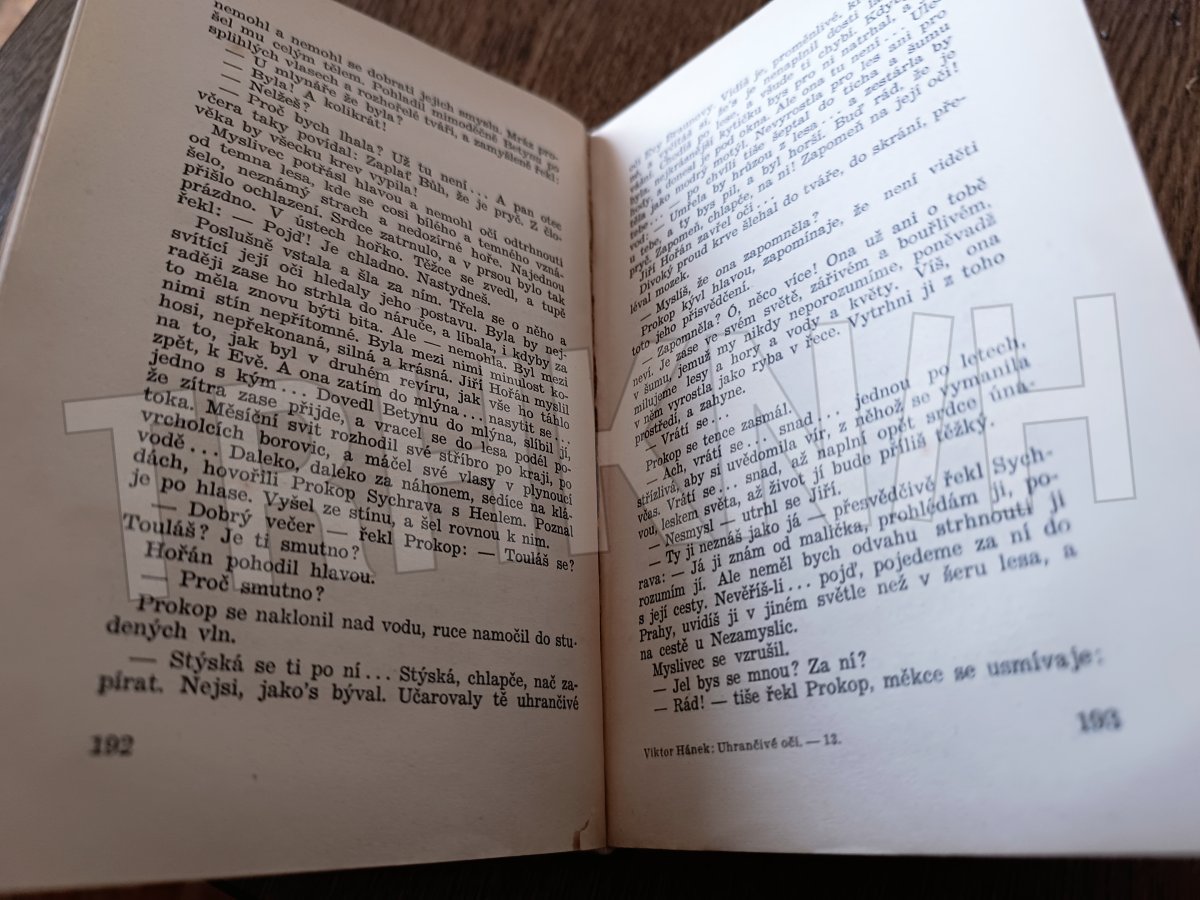 nemohl a nemohl se dobrati jejich smyslu. Mráz pro-
šel mu celým tělem. Pohladil mimoděčně Betynu po
splihlých vlasech a rozhořelé tváři, a zamyšleně řekl:
— U mlynáře že byla?
— Byla! A kolikrát!
— Nelžeš?
— Proč bych lhala? Už tu není... A pan otec
včera taky povídal: Zaplať Bůh, že je pryč. Z člo-
věka by všecku krev vypila!
Myslivec potřásl hlavou a nemohl očí odtrhnouti
od temna lesa, kde se cosi bílého a temného vzná-
šelo, neznámý strach a nedozírné hoře. Najednou
přišlo ochlazení. Srdce zatrnulo, a v prsou bylo tak
prázdno. V ústech hořko. Těžce se zvedl, a tupě
řekl: — Pojď! Je chladno. Nastydneš.
Poslušně vstala a šla za ním. Třela se o něho a
svítící její oči hledaly jeho postavu. Byla by nej-
raději zase ho strhla do náruče, a líbala, i kdyby za
to měla znovu býti bita. Ale — nemohla. Byl mezi
nimi stín nepřítomné. Byla mezi nimi minulost ko-
hosi, nepřekonaná, silná a krásná. Jiří Hořán myslil
na to, jak byl v druhém revíru, jak vše ho táhlo
zpět, k Evě. A ona zatím do mlýna... nasytit se...
jedno s kým... Dovedl Betynu do mlýna, slíbil jí,
že zítra zase přijde, a vracel se do lesa podél po-
toka. Měsíční svit rozhodil své stříbro po kraji, po
vrcholcích borovic, a máčel své vlasy v plynoucí
vodě... Daleko, daleko za náhonem, sedíce na klá-
dách, hovořili Prokop Sychrava s Henlem. Poznal
je po hlase. Vyšel ze stínu, a šel rovnou k nim.
— Dobrý večer — řekl Prokop: — Touláš se?
Touláš? Je ti smutno?
Hořán pohodil hlavou.
— Proč smutno?
Prokop se naklonil nad vodu, ruce namočil do stu-
dených vln.
— Stýská se ti po ní... Stýská, chlapče, nač za-
pírat. Nejsi, jako's býval. Učarovaly tě uhrančivé
192
oči Evy Sramovy. Vidíš je,
byl
vod: — po chvíli tiše šeptal do ticha a šumu
— Umřela by hrůzou z lesa... a zestárla by
u tebe, a ty bys pil, a byl horší. Buď rád, že je
pryč. Zapomeň, chlapče, na ni! Zapomeň na její oči!
Jiří Hořán zavřel oči...
Divoký proud krve šlehal do tváře, do skrání, pře-
léval mozek.
— Myslíš, že ona zapomněla?
Prokop kývl hlavou, zapomínaje, že není viděti
toto jeho přisvědčení.
— Zapomněla? Ó, něco více! Ona už ani o tobě
neví. Je zase ve svém světě, zářivém a bouřlivém,
v šumu, jemuž my nikdy neporozumíme, poněvadž
milujeme lesy a hory a vody a květy. Víš, ona
v něm vyrostla jako ryba v řece. Vytrhni ji z toho
prostředí, a zahyne.
— Vrátí se...
Prokop se tence zasmál.
— Ach, vrátí se... snad... jednou po letech,
střízlivá, aby si uvědomila vír, z něhož se vymanila
včas. Vrátí se... snad, až naplní opět srdce úna-
vou, leskem světa, až život jí bude příliš těžký.
— Nesmysl — utrhl se Jiří.
— Ty ji neznáš jako já — přesvědčivě řekl Sych-
rava: — Já ji znám od malička, prohlédám ji, po-
rozumím jí. Ale neměl bych odvahu strhnouti ji
s její cesty. Nevěříš-li... pojď, pojedeme za ní do
Prahy, uvidíš ji v jiném světle než v šeru lesa, a
na cestě u Nezamyslic.
Myslivec se vzrušil.
— Jel bys se mnou? Za ní?
— Rád! — tiše řekl Prokop, měkce se usmívaje:
Viktor Hánek: Uhrančivé oči. — 13.
193